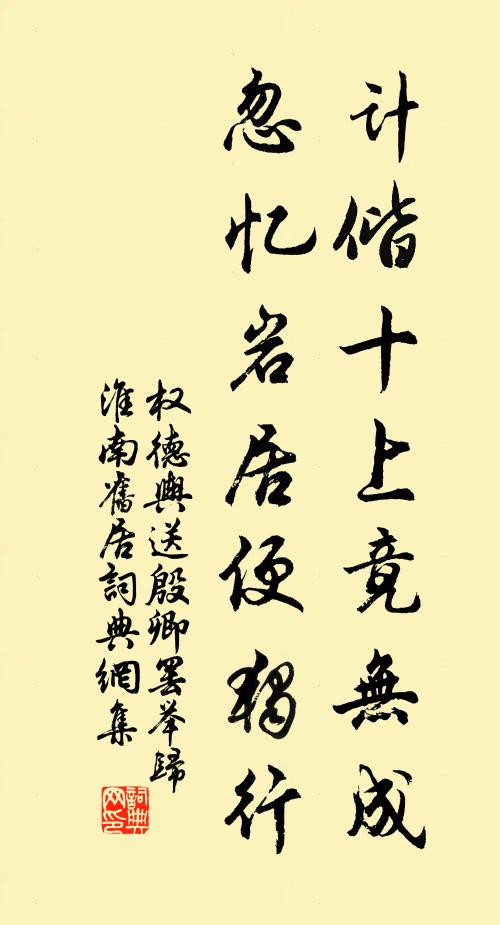 计偕十上竟無成
忽忆岩居便独行
权德舆送殷卿罢举歸
淮南舊居詞典網集
詞典网印